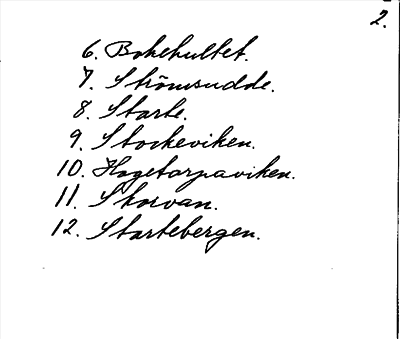 2.
6. Bokehultet.
7. Strömsudde.
8. Starte.
9. Stockeviken.
10. Hogetorpaviken.
11. Storvan.
12. Startebergen.